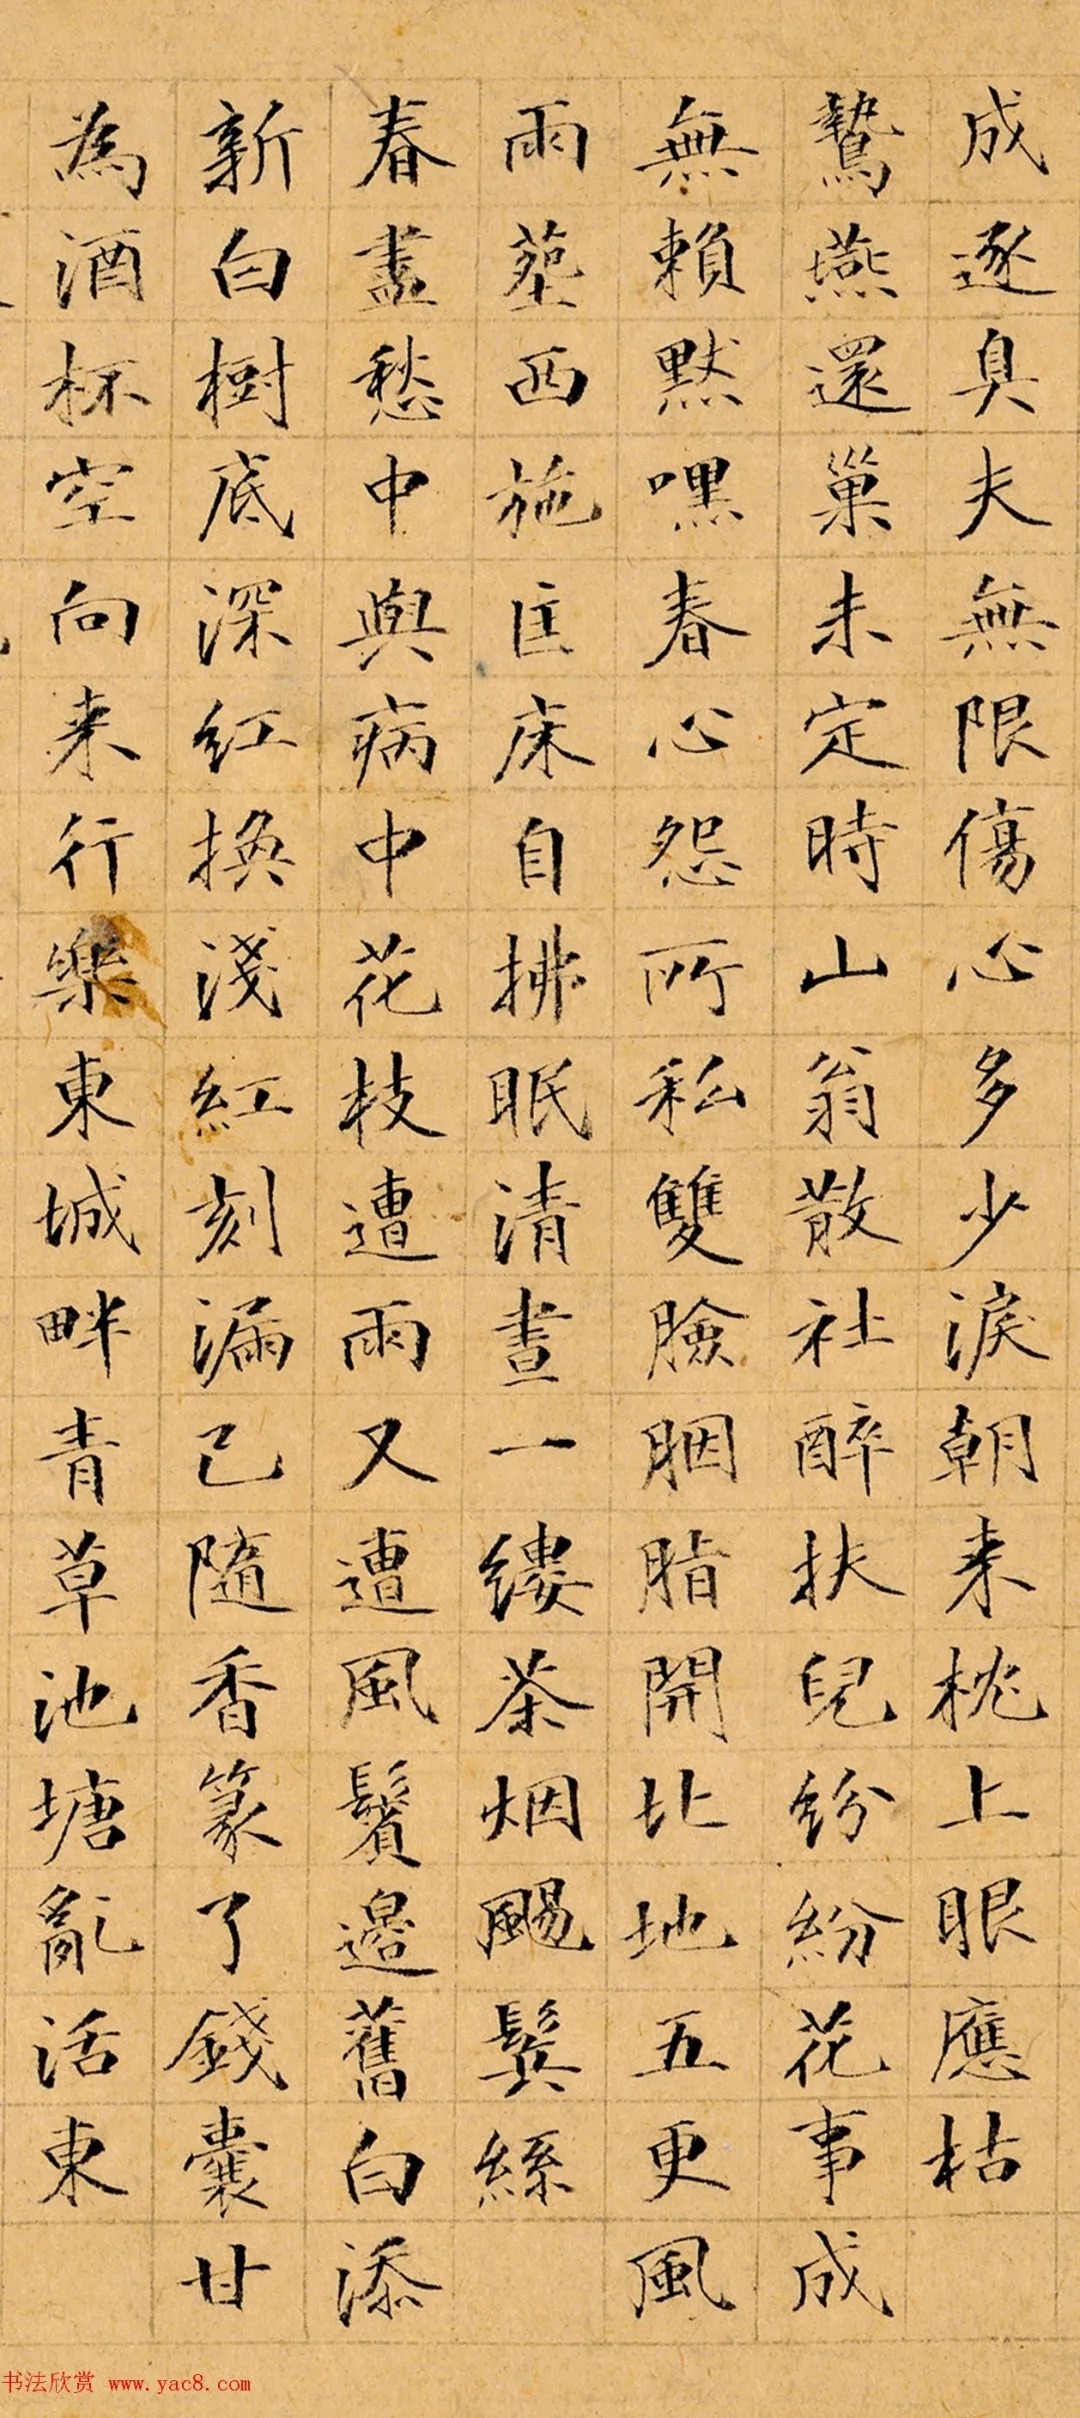 成逐臭夫無限傷心多少淚朝来枕上眼應枯
鶩燕還巢未定時山翁散社醉扶兒紛紛花事成
無賴默嘿春心怨所私雙臉胭脂開北地五更風
雨葬西施匡床自拂眠清晝一縷茶烟颺鬓絲
春盡愁中與病中花枝遭雨又遭風鬢邊舊白添
新白樹底深紅換淺紅刻漏已隨香篆了錢囊甘
為酒杯空向来行樂東城畔青草池塘亂活東
书法欣赏 www.yac8.com